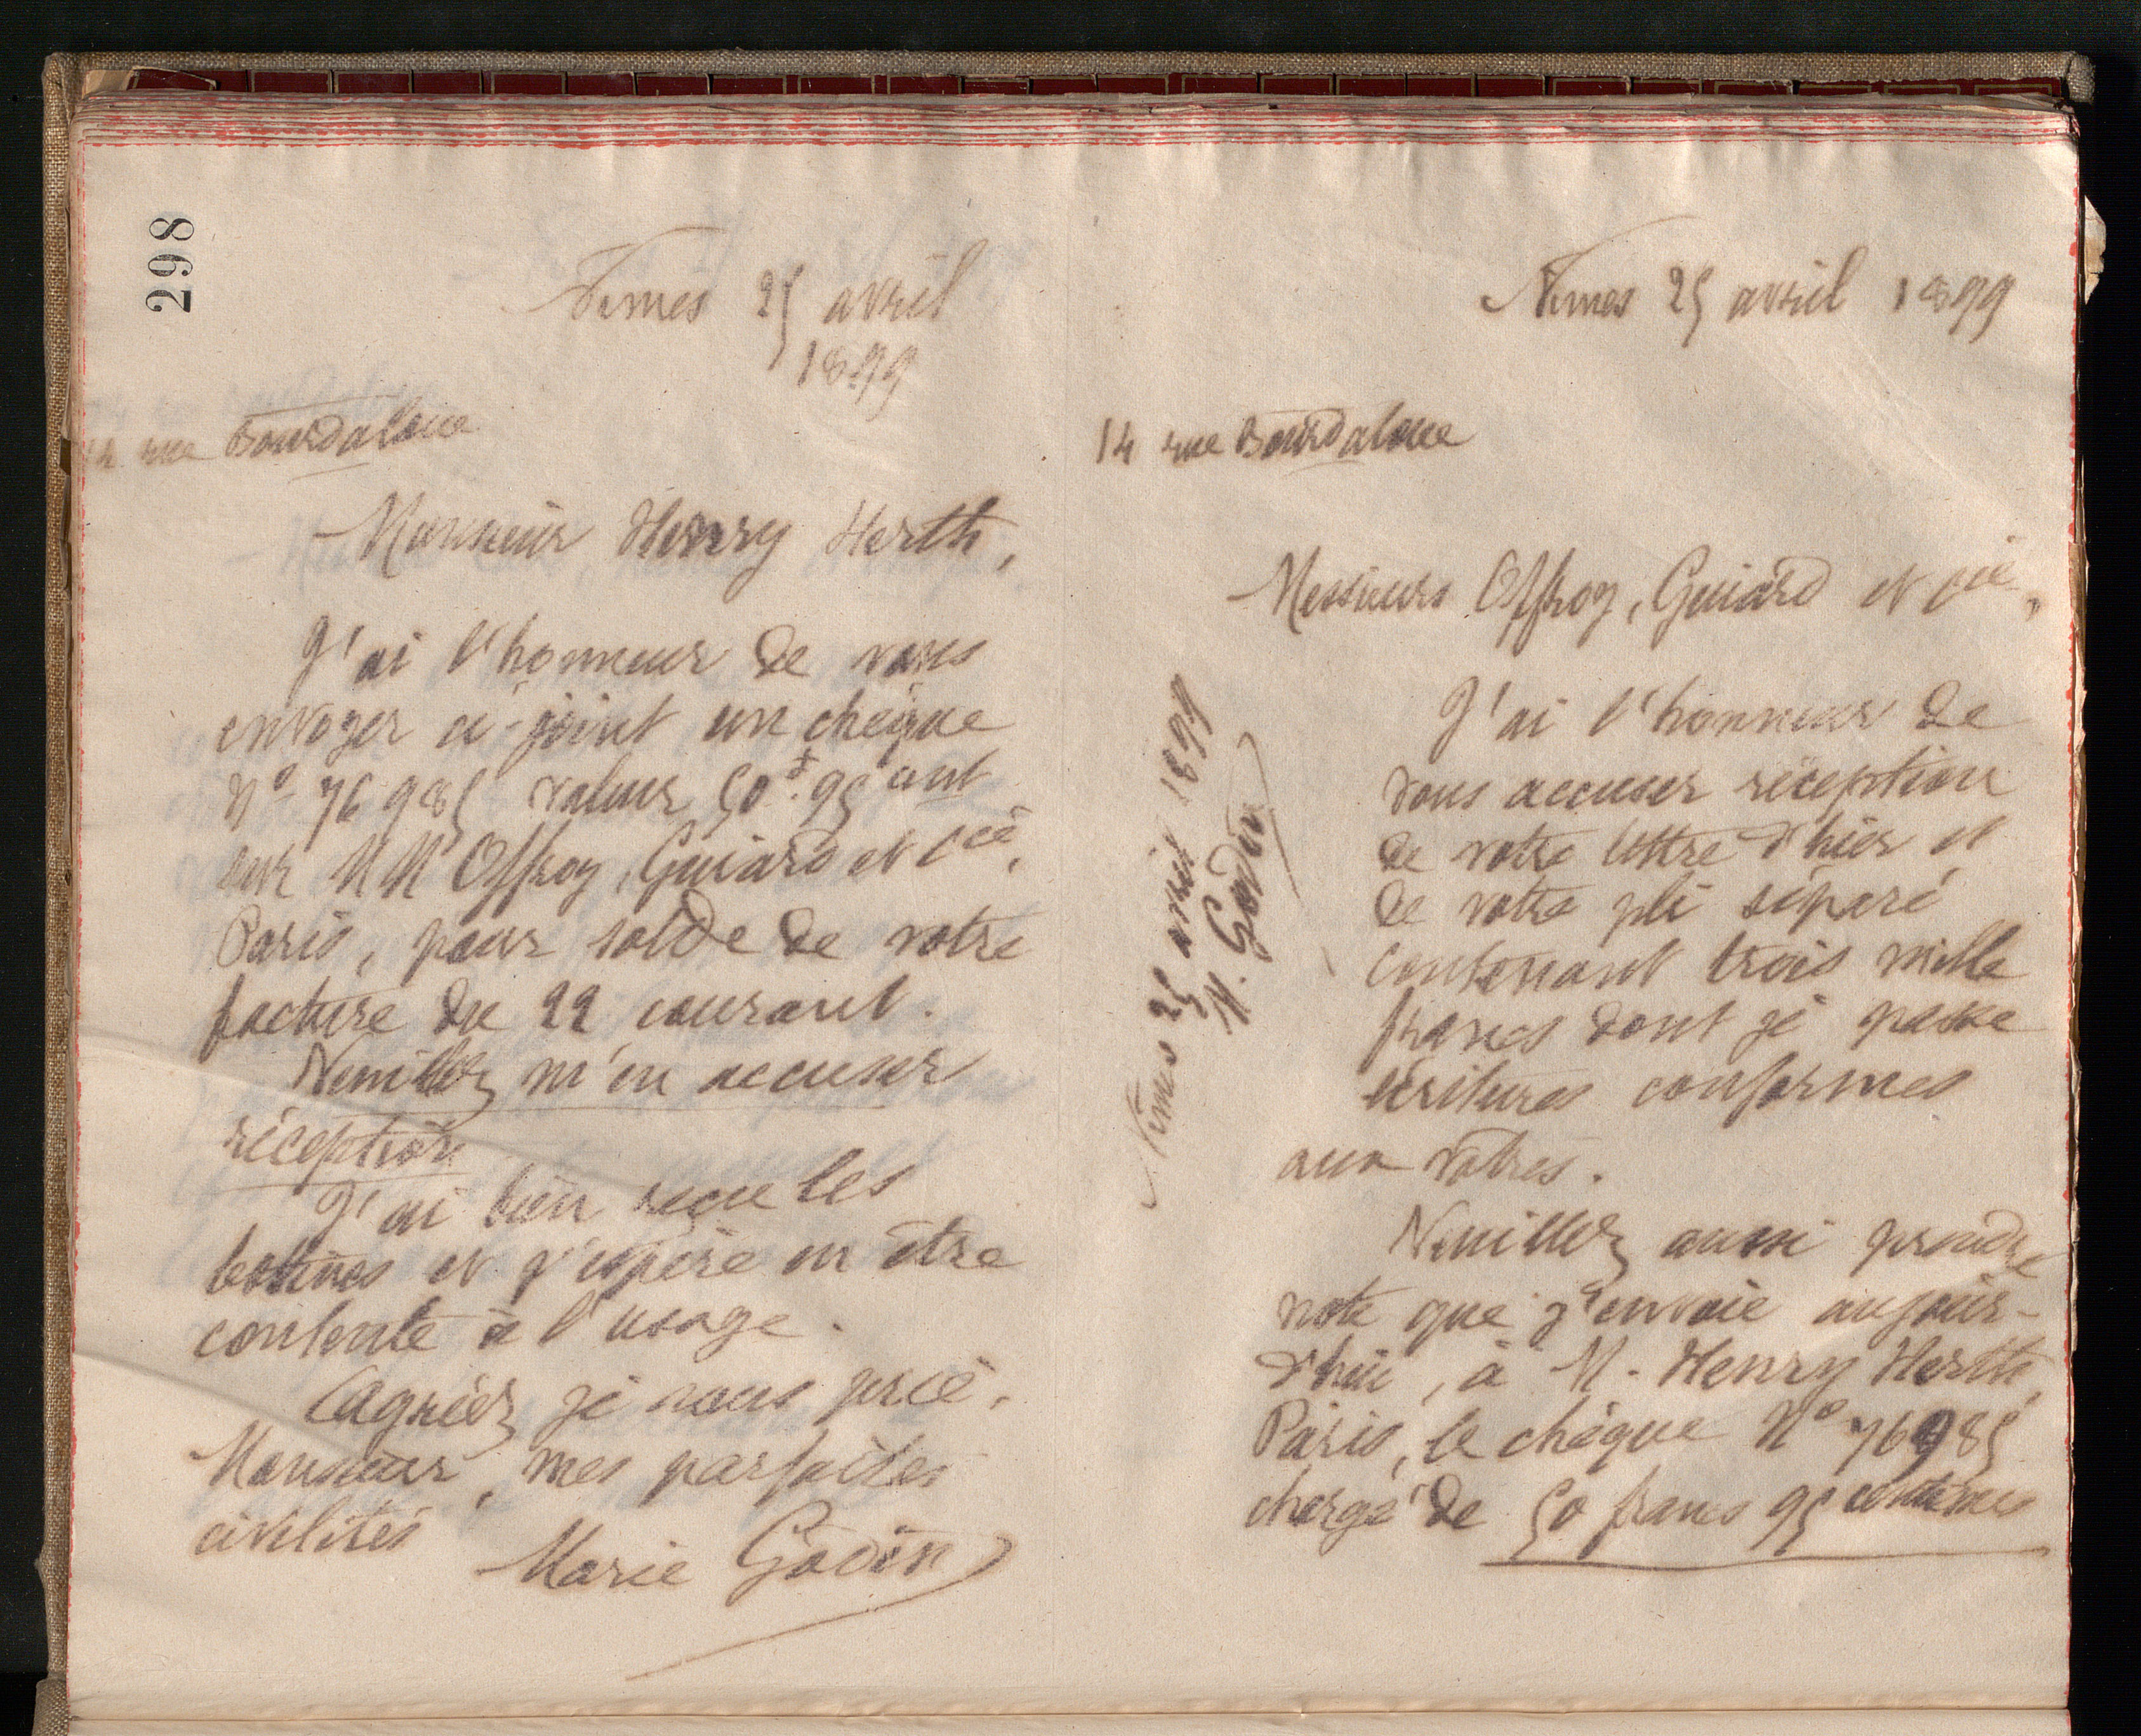 298
Nîmes 25 avril
1899
14 rue Bourdaloue
Monsieur Henry Herth,
J'ai l'honneur de vous
envoyer ci-joint un chèque
No 76985 valeur 50f.95 ant
sur MM Offroy, Guiard et Cie,
Paris, pour solde de votre
facture du 22 courant.
Veuillez m'en accuser
réception
J'ai bien reçu les
bottines et j'espère en être
contente à l'usage.
Agréez je vous prie,
Monsieur, mes parfaites
civilités
Marie Godin
Nîmes 25 avril 1899
14 rue Bourdaloue
Messieurs Offroy, Guiard et Cie,
J'ai l'honneur de
vous accuser réception
de votre lettre d'hier et
de votre pli séparé
contenant trois mille
francs dont je passe
écritures conformes
aux vôtres.
Veuillez aussi prendre
note que j'envoie aujour-
d'hui, à M. Henry Herth,
Paris, le chèque No 76985
chargé de 50 francs 95 centimes
Nîmes 25 avril 1899
M. Godin